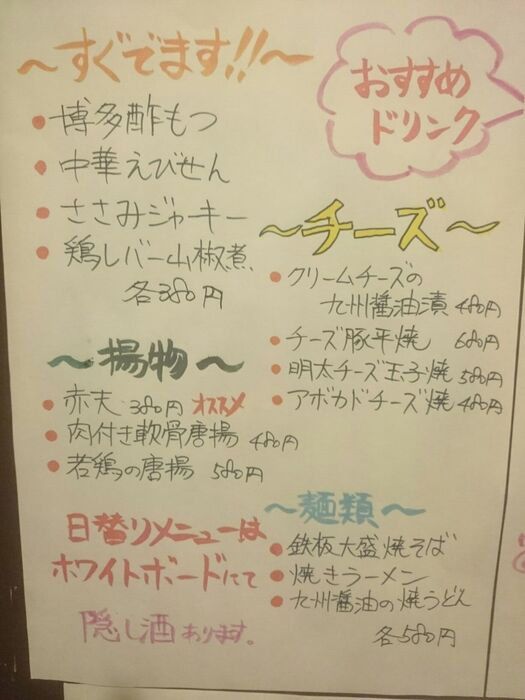 ～すぐでます!!～
おすすめ
ドリンク
• 博多酢もつ
• 中華えびせん
• ささみジャーキー
• 鶏レバー山椒煮
各380円
～チーズ～
• クリームチーズの
九州醤油漬 480円
• チーズ豚平焼 680円
• 明太チーズ玉子焼 580円
• アボカドチーズ焼 480円
～揚物～
• 赤天 380円 オススメ
• 肉付き軟骨唐揚 480円
• 若鶏の唐揚 580円
～麺類～
• 鉄板大盛焼そば
• 焼きラーメン
• 九州醤油の焼うどん
各580円
日替りメニューは
ホワイトボードにて
隠し酒あります。